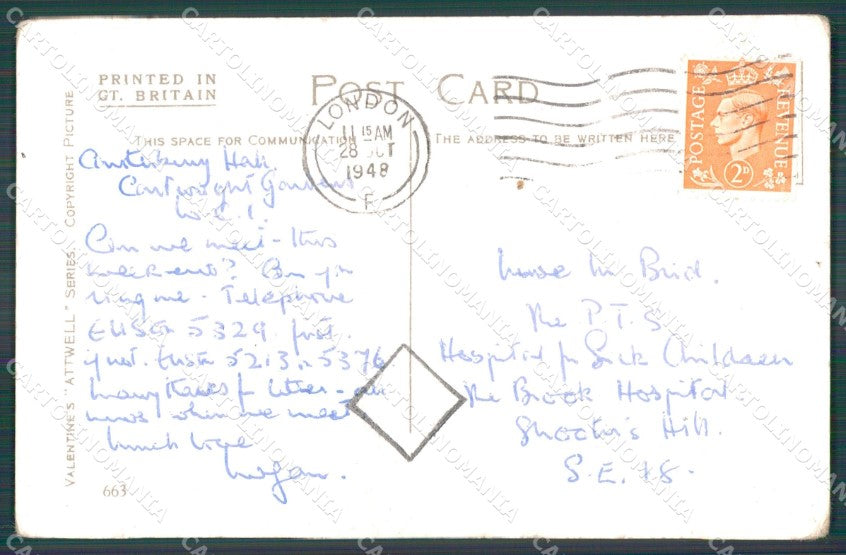 PRINTED IN
GT. BRITAIN
POST CARD
THIS SPACE FOR COMMUNICATION
THE ADDRESS TO BE WRITTEN HERE
VALENTINE'S "ATTWELL" SERIES. COPYRIGHT PICTURE
LONDON
11 15 AM
28 OCT
1948
F
POSTAGE
REVENUE
2D
Canterbury Hall
Cartwright Gardens
W.C.1.
Can we meet - this
weekend? Can you
ring me - Telephone
EUSTON 5329 first
5213 5376
Many thanks for letter - our
news when we meet
much love
Nurse M Bird.
The P.T.S
Hospital for Sick Children
The Brook Hospital
Shooter's Hill.
S.E.18.
663
CARTOLINOMANIA